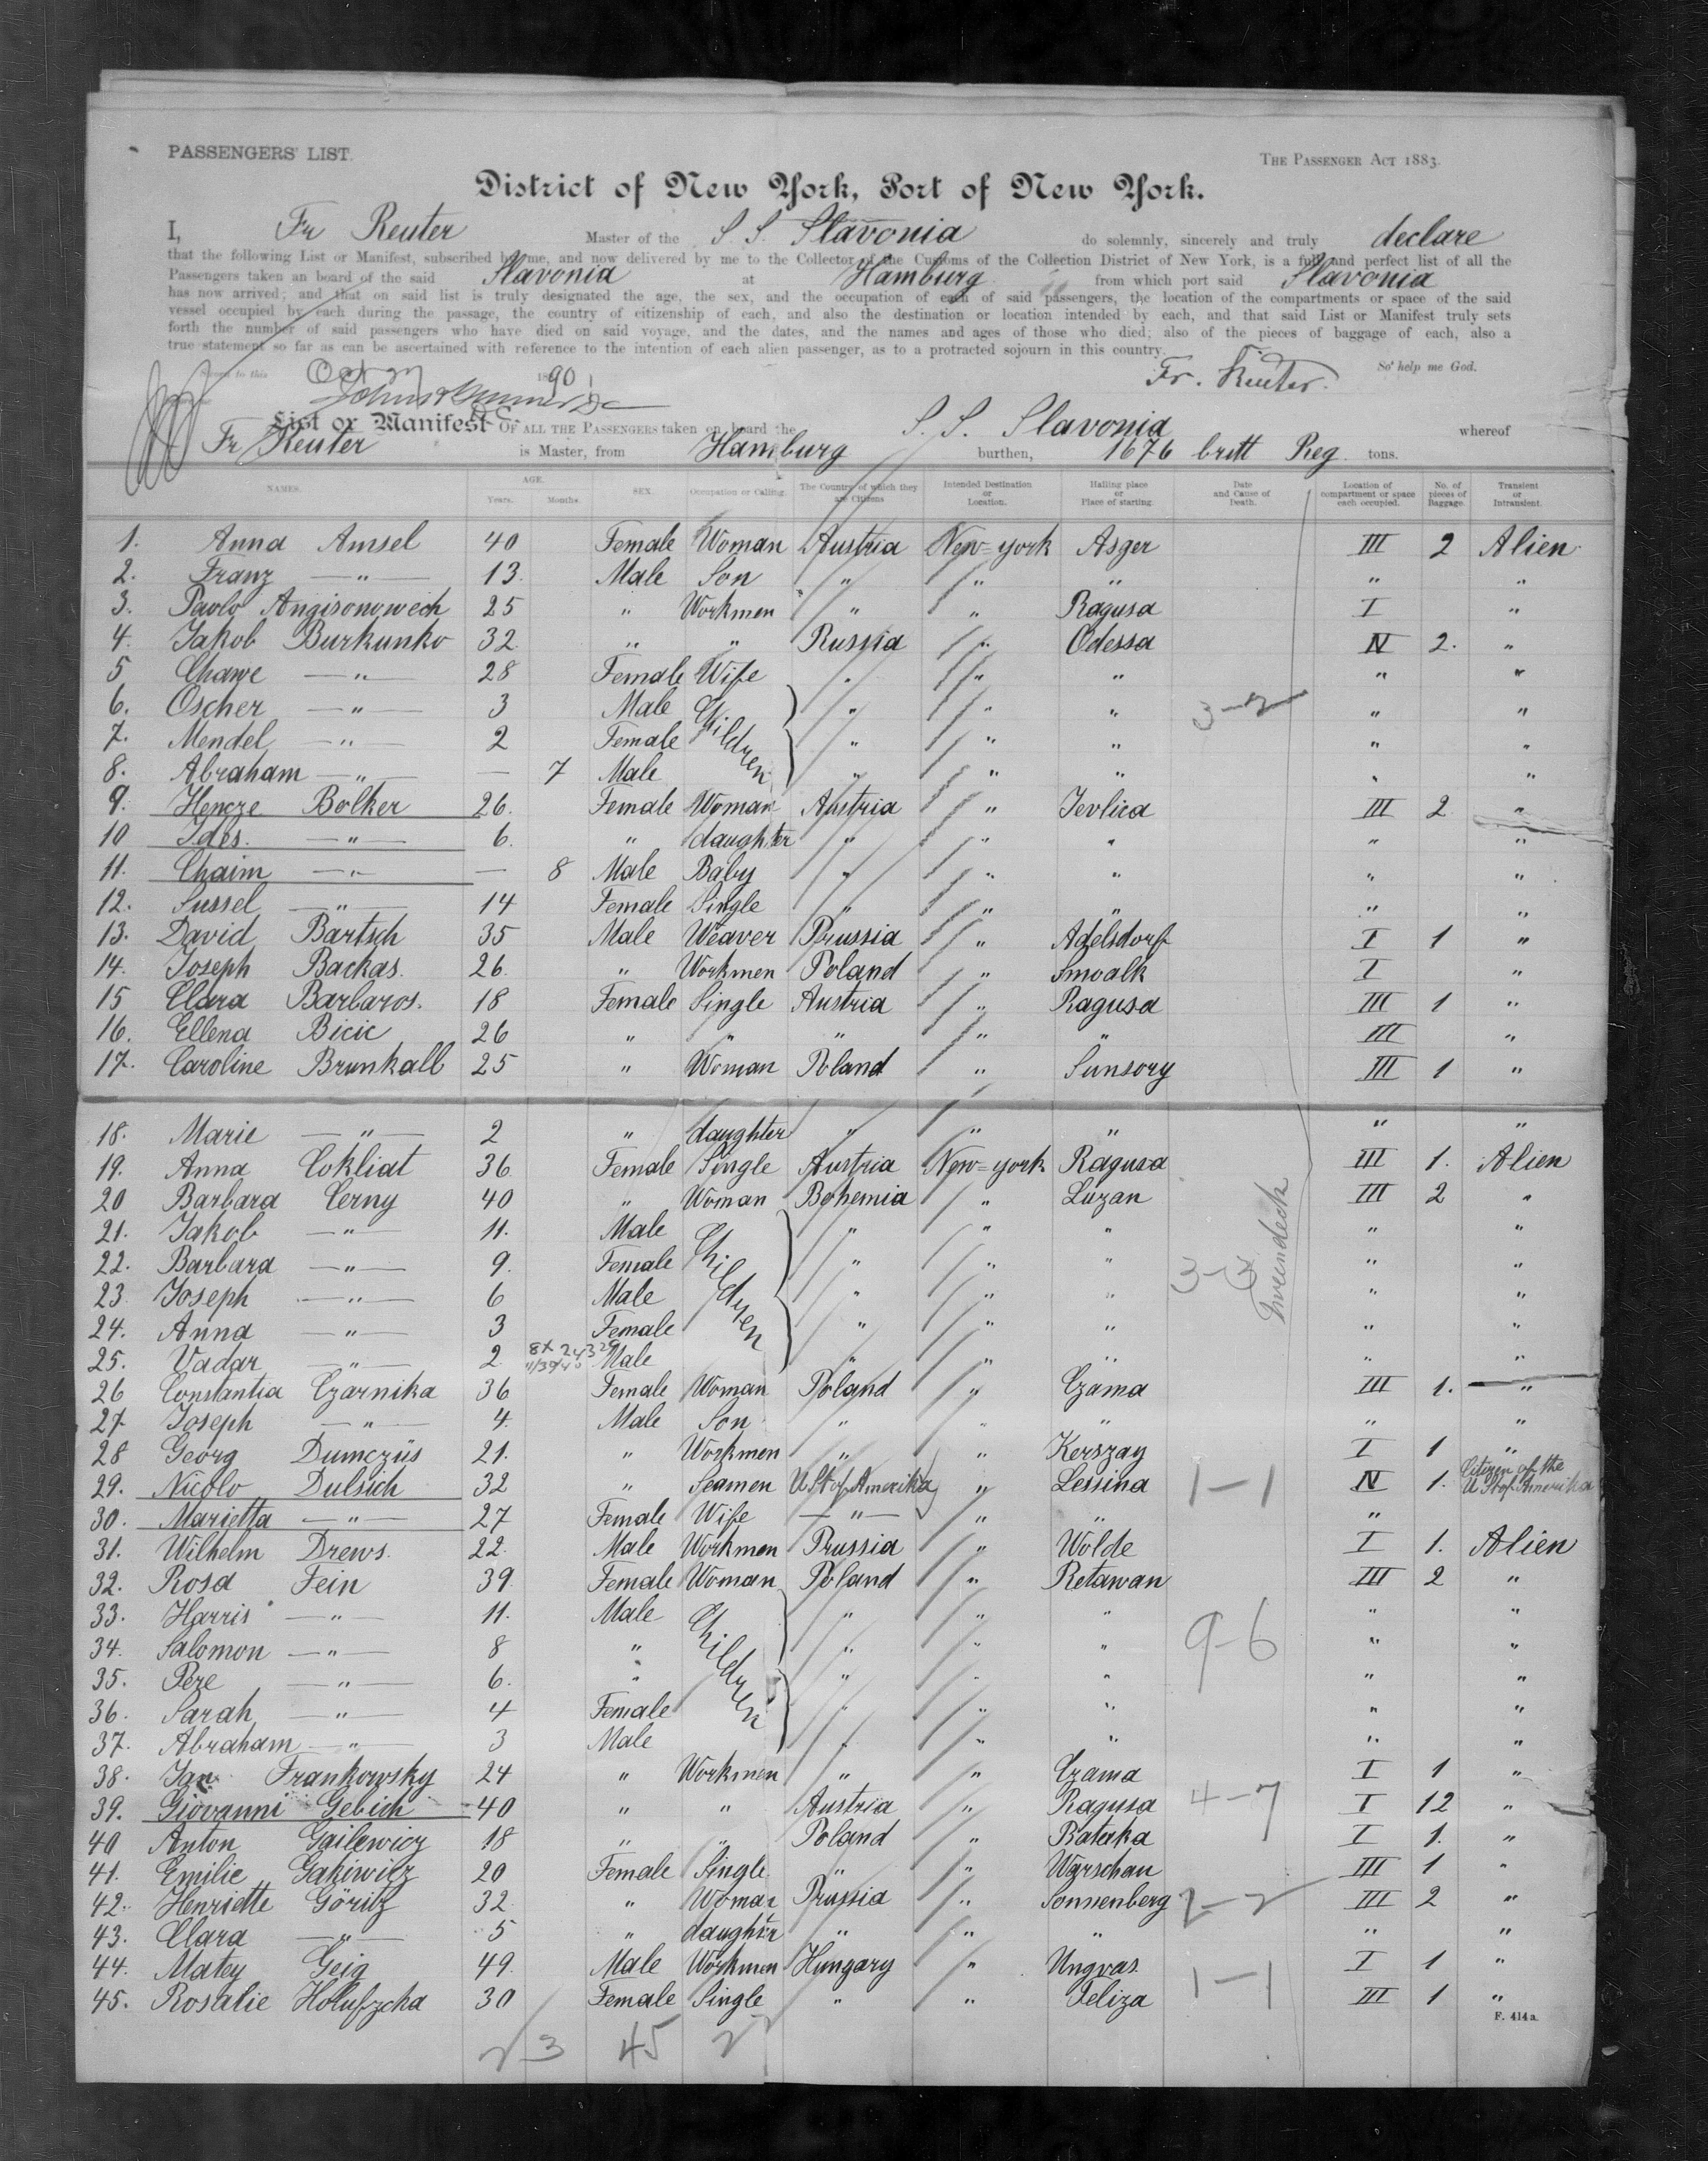 PASSENGERS' LIST.
THE PASSENGER ACT 1883.
District of New York, Port of New York.
I, Fr Reuter Master of the S. S. Slavonia do solemnly, sincerely and truly declare
that the following List or Manifest, subscribed by me, and now delivered by me to the Collector of the Customs of the Collection District of New York, is a full and perfect list of all the
Passengers taken an board of the said Slavonia at Hamburg from which port said Slavonia
has now arrived; and that on said list is truly designated the age, the sex, and the occupation of each of said passengers, the location of the compartments or space of the said
vessel occupied by each during the passage, the country of citizenship of each, and also the destination or location intended by each, and that said List or Manifest truly sets
forth the number of said passengers who have died on said voyage, and the dates, and the names and ages of those who died; also of the pieces of baggage of each, also a
true statement so far as can be ascertained with reference to the intention of each alien passenger, as to a protracted sojourn in this country.
Sworn to this Oct 27 1890 Fr. Reuter. So help me God.
List or Manifest OF ALL THE PASSENGERS taken on board the S. S. Slavonia whereof
Fr Reuter is Master, from Hamburg burthen, 1676 britt Reg. tons.
NAMES. AGE. Years. Months. SEX. Occupation or Calling. The Country of which they are Citizens Intended Destination or Location. Halling place or Place of starting. Date and Cause of Death. Location of compartment or space each occupied. No. of pieces of Baggage. Transient or Intransient.
1. Anna Amsel 40 Female Woman Austria New-york Asger III 2 Alien
2. Franz —"— 13. Male Son " " " " "
3. Pavlo Angisonowech 25 " Workmen " " Ragusa I "
4. Jakob Burkunko 32 " " Russia " Odessa IV 2. "
5 Chawe —"— 28 Female Wife " " " " "
6. Oscher —"— 3 Male Children " " " 3-2 " "
7. Mendel —"— 2 Female " " " " "
8. Abraham —"— — 7 Male " " " " "
9. Hencze Bolker 26. Female Woman Austria " Jevlica III 2 "
10 Ides. —"— 6. " daughter " " " " "
11. Chaim —"— — 8 Male Baby " " " " "
12. Sussel —"— 14 Female Single " " " " "
13. David Bartsch 35 Male Weaver Prussia " Adelsdorf I 1 "
14. Joseph Backas. 26. " Workmen Poland " Smoalk I "
15 Clara Barbaros. 18 Female Single Austria " Ragusa III 1 "
16. Ellena Bicic 26 " " " " " III "
17. Caroline Brunkall 25 " Woman Poland " Sunsory III 1 "
18. Marie —"— 2 " daughter " " " " "
19. Anna Cokliat 36 Female Single Austria New-york Ragusa III 1. Alien
20 Barbara Cerny 40 " Woman Bohemia " Luzan III 2 "
21. Jakob —"— 11. Male Children " " " " "
22. Barbara —"— 9. Female " " " " "
23. Joseph —"— 6 Male " " " 3- " "
24. Anna —"— 3 Female " " " " "
25. Vadar —"— 2. Male " " " " "
26 Constantia Czarnika 36 Female Woman Poland " Czama III 1. "
27 Joseph —"— 4. Male Son " " " " "
28 Georg Dumczüs 21. " Workmen " " Kerszay I 1 "
29. Nicolo Dulsich 32 " Seamen U.St of Amerika " Lessina 1-1 IV 1. Citizen of the U St of Amerika
30. Marietta —"— 27 Female Wife —"— " " "
31. Wilhelm Drews. 22. Male Workmen Prussia " Wolde I 1. Alien
32. Rosa Fein 39 Female Woman Poland " Retawan III 2 "
33. Harris —"— 11. Male Children " " " 9-6 " "
34. Salomon —"— 8 " " " " " "
35. Peze —"— 6. " " " " " "
36. Sarah —"— 4 Female " " " " "
37. Abraham —"— 3 Male " " " " "
38. Jan Frankowsky 24 " Workmen " " Czama I 1 "
39. Giovanni Gebich 40 " " Austria " Ragusa 4-7 I 12 "
40 Anton Gailewicz 18 " " Poland " Rataka I 1. "
41. Emilie Gakiwicz 20 Female Single " " Warschau III 1 "
42. Henriette Göritz 32 " Woman Prussia " Sonnenberg 2-2 III 2 "
43. Clara —"— 5 " daughter " " " " "
44. Matey Geig 49. Male Workmen Hungary " Ungvas. I 1 "
45. Rosalie Holufzcha 30 Female Single " " Feliza 1-1 III 1 "
F. 414 a.
23 45 22